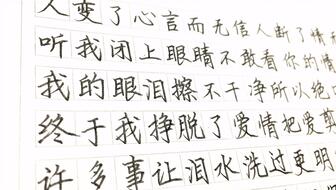 人变了心言而无信人断了情
听我闭上眼睛不敢看你的情
我的眼泪擦不干净所以绝
终于我挣脱了爱情把爱
许多事让泪水洗过更明